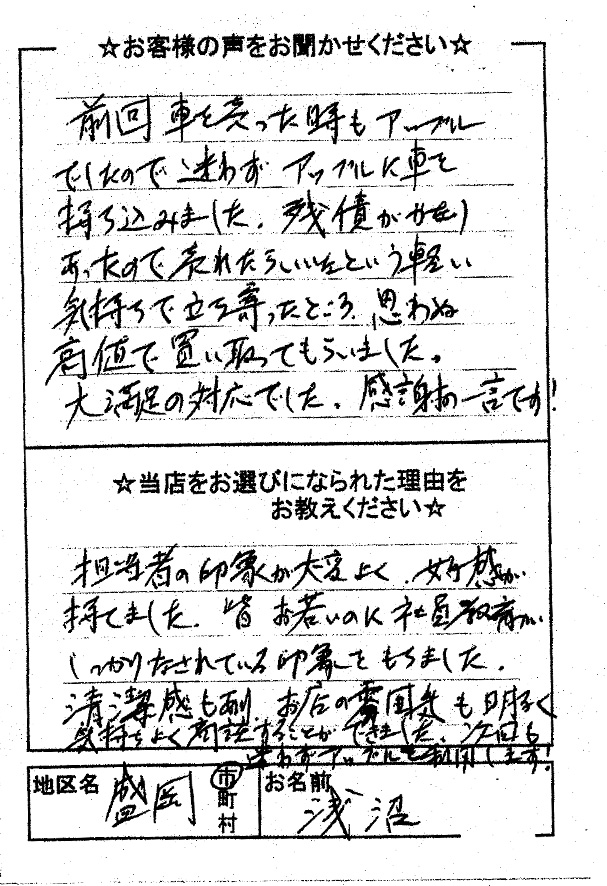 ☆お客様の声をお聞かせください☆
前回車を売った時もアップル
でしたので迷わずアップルに車を
持ち込みました。残債がかなり
あったので売れたらいいなという軽い
気持ちで立ち寄ったところ、思わぬ
高値で買い取ってもらいました。
大満足の対応でした。感謝の一言です!
☆当店をお選びになられた理由を
お教えください☆
担当者の印象が大変よく、好感が
持てました。皆お若いのに社員教育が
しっかりなされている印象をもちました。
清潔感もあり、お店の雰囲気も明るく
気持ちよく商談することができました。次回も
迷わずアップルを利用します!
地区名 盛岡 市町村 お名前 浅沼